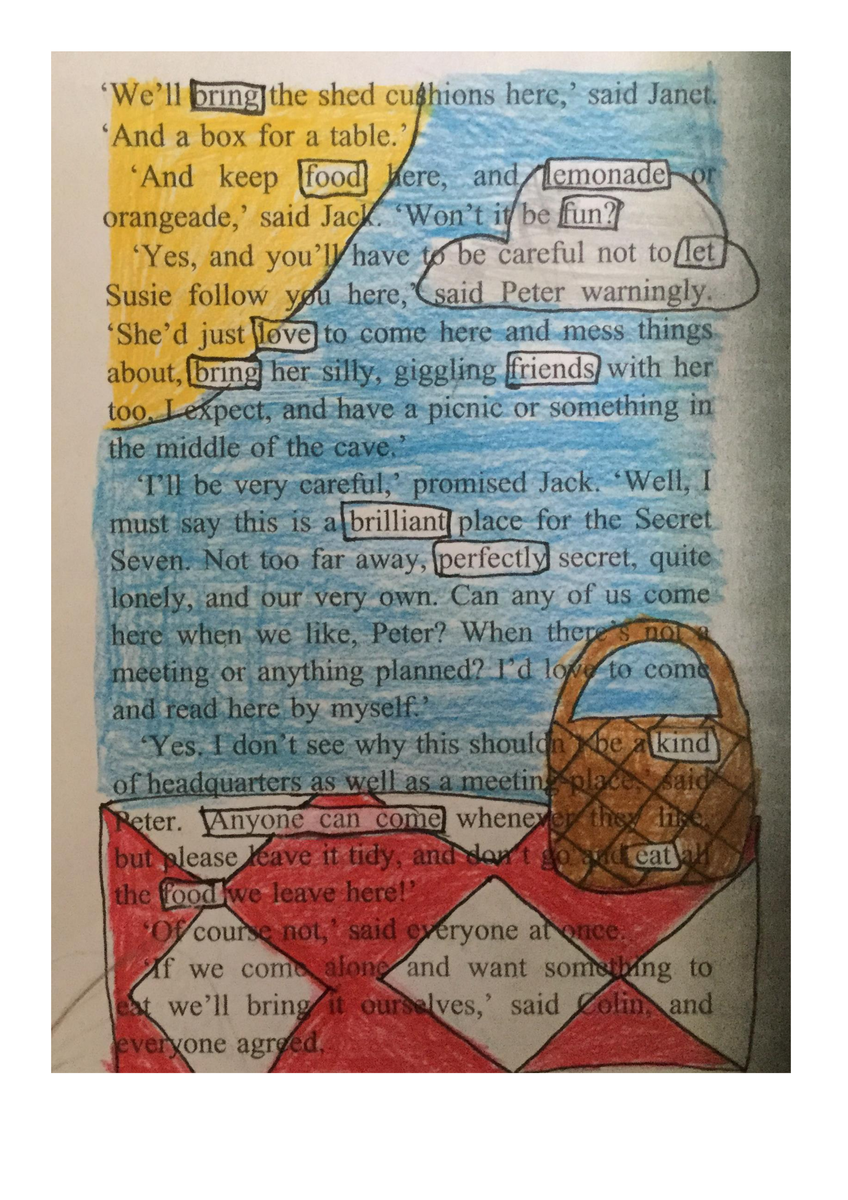 ‘We’ll bring the shed cushions here,’ said Janet.
‘And a box for a table.’
‘And keep food here, and lemonade or
orangeade,’ said Jack. ‘Won’t it be fun?’
‘Yes, and you’ll have to be careful not to let
Susie follow you here,’ said Peter warningly.
‘She’d just love to come here and mess things
about, bring her silly, giggling friends with her
too, I expect, and have a picnic or something in
the middle of the cave.’
‘I’ll be very careful,’ promised Jack. ‘Well, I
must say this is a brilliant place for the Secret
Seven. Not too far away, perfectly secret, quite
lonely, and our very own. Can any of us come
here when we like, Peter? When there’s not a
meeting or anything planned? I’d love to come
and read here by myself.’
‘Yes. I don’t see why this shouldn’t be a kind
of headquarters as well as a meeting-place,’ said
Peter. ‘Anyone can come whenever they like,
but please leave it tidy, and don’t go and eat all
the food we leave here!’
‘Of course not,’ said everyone at once.
‘If we come alone and want something to
eat we’ll bring it ourselves,’ said Colin, and
everyone agreed.